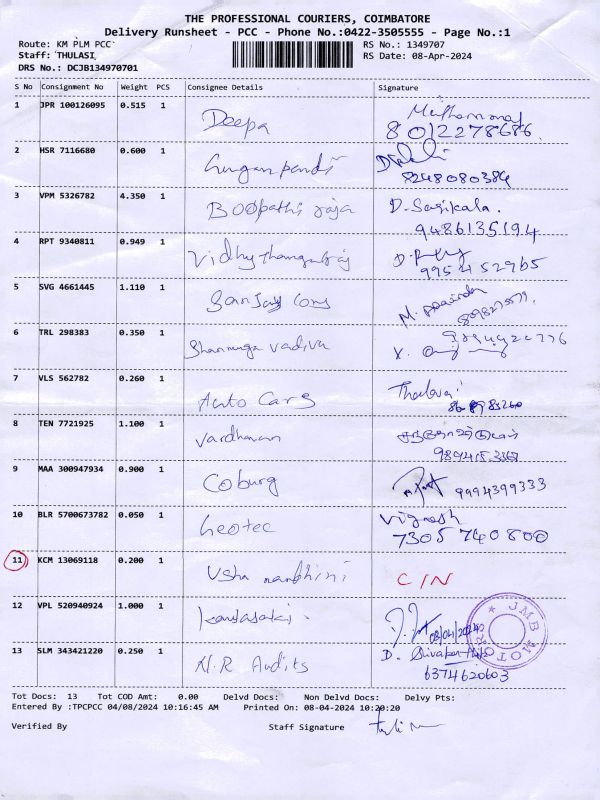 THE PROFESSIONAL COURIERS, COIMBATORE
Delivery Runsheet - PCC - Phone No.:0422-3505555 - Page No.:1
Route: KM PLM PCC
RS No.: 1349707
Staff: THULASI
RS Date: 08-Apr-2024
DRS No.: DCJB134970701
S No Consignment No Weight PCS Consignee Details Signature
1 JPR 100126095 0.515 1 Deepa
8012278686
2 HSR 7116680 0.600 1
8248080384
3 VPM 5326782 4.350 1 Boopathi raja D. Sasikala.
9486135194
4 RPT 9340811 0.949 1
9954452965
5 SVG 4661445 1.110 1 Sanjay M.
6 TRL 298383 0.350 1 Shanmuga vadiva
7 VLS 562782 0.260 1 Auto Cars
8 TEN 7721925 1.100 1 Vardhaman
9 MAA 300947934 0.900 1 Coburg 9994399333
10 BLR 5700673782 0.050 1 Geotec Vignesh
7305740800
11 KCM 13069118 0.200 1 Usha nandhini C/N
12 VPL 520940924 1.000 1 08/04/2024
JMB MOTORS
13 SLM 343421220 0.250 1 N.R Audits D.
6374620603
Tot Docs: 13 Tot COD Amt: 0.00 Delvd Docs: Non Delvd Docs: Delvy Pts:
Entered By :TPCPCC 04/08/2024 10:16:45 AM Printed On: 08-04-2024 10:20:20
Verified By Staff Signature